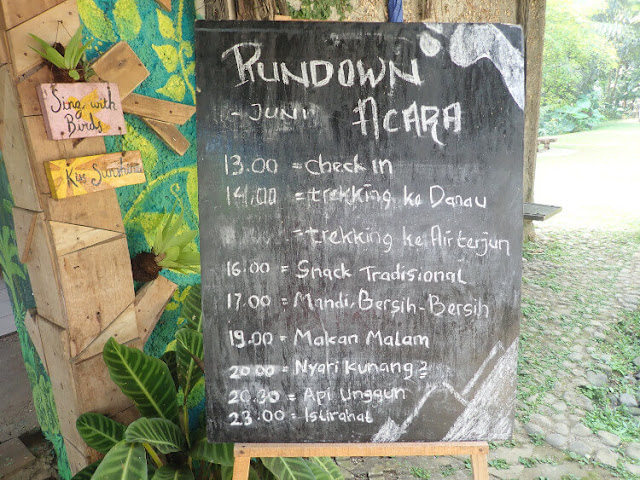 RUNDOWN
ACARA
- JUNI
13.00 = check in
14.00 = trekking ke Danau
= trekking ke Air terjun
16.00 = Snack Tradisional
17.00 = Mandi, Bersih-Bersih
19.00 = Makan Malam
20.00 = Nyari Kunang2
20.30 = Api Unggun
23.00 = Istirahat
Sing with
Birds
Kiss Sunshine